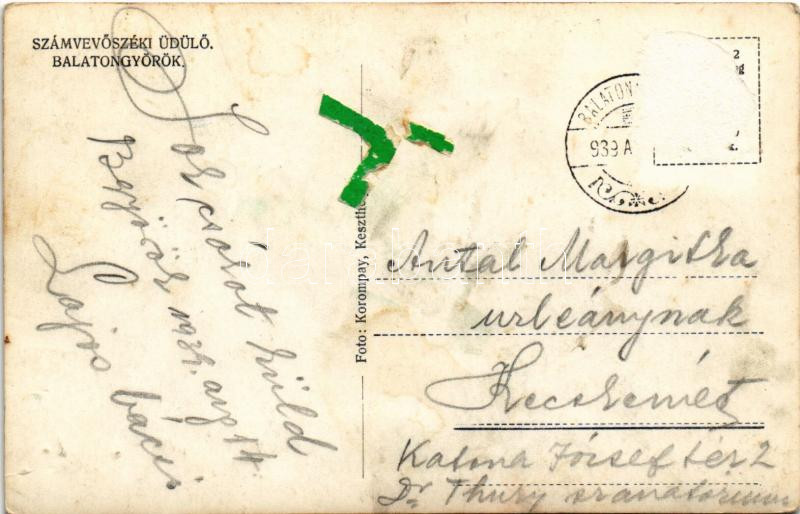 SZÁMVEVŐSZÉKI ÜDÜLŐ.
BALATONGYÖRÖK.
Sok csókot küld
B.györök 1939. aug 14.
Lajos bácsi
Foto: Korompay, Keszthe
BALATON
939 A
Antal Margitka
urleánynak
Kecskemét
Katona József tér 2
Dr Thury szanatorium